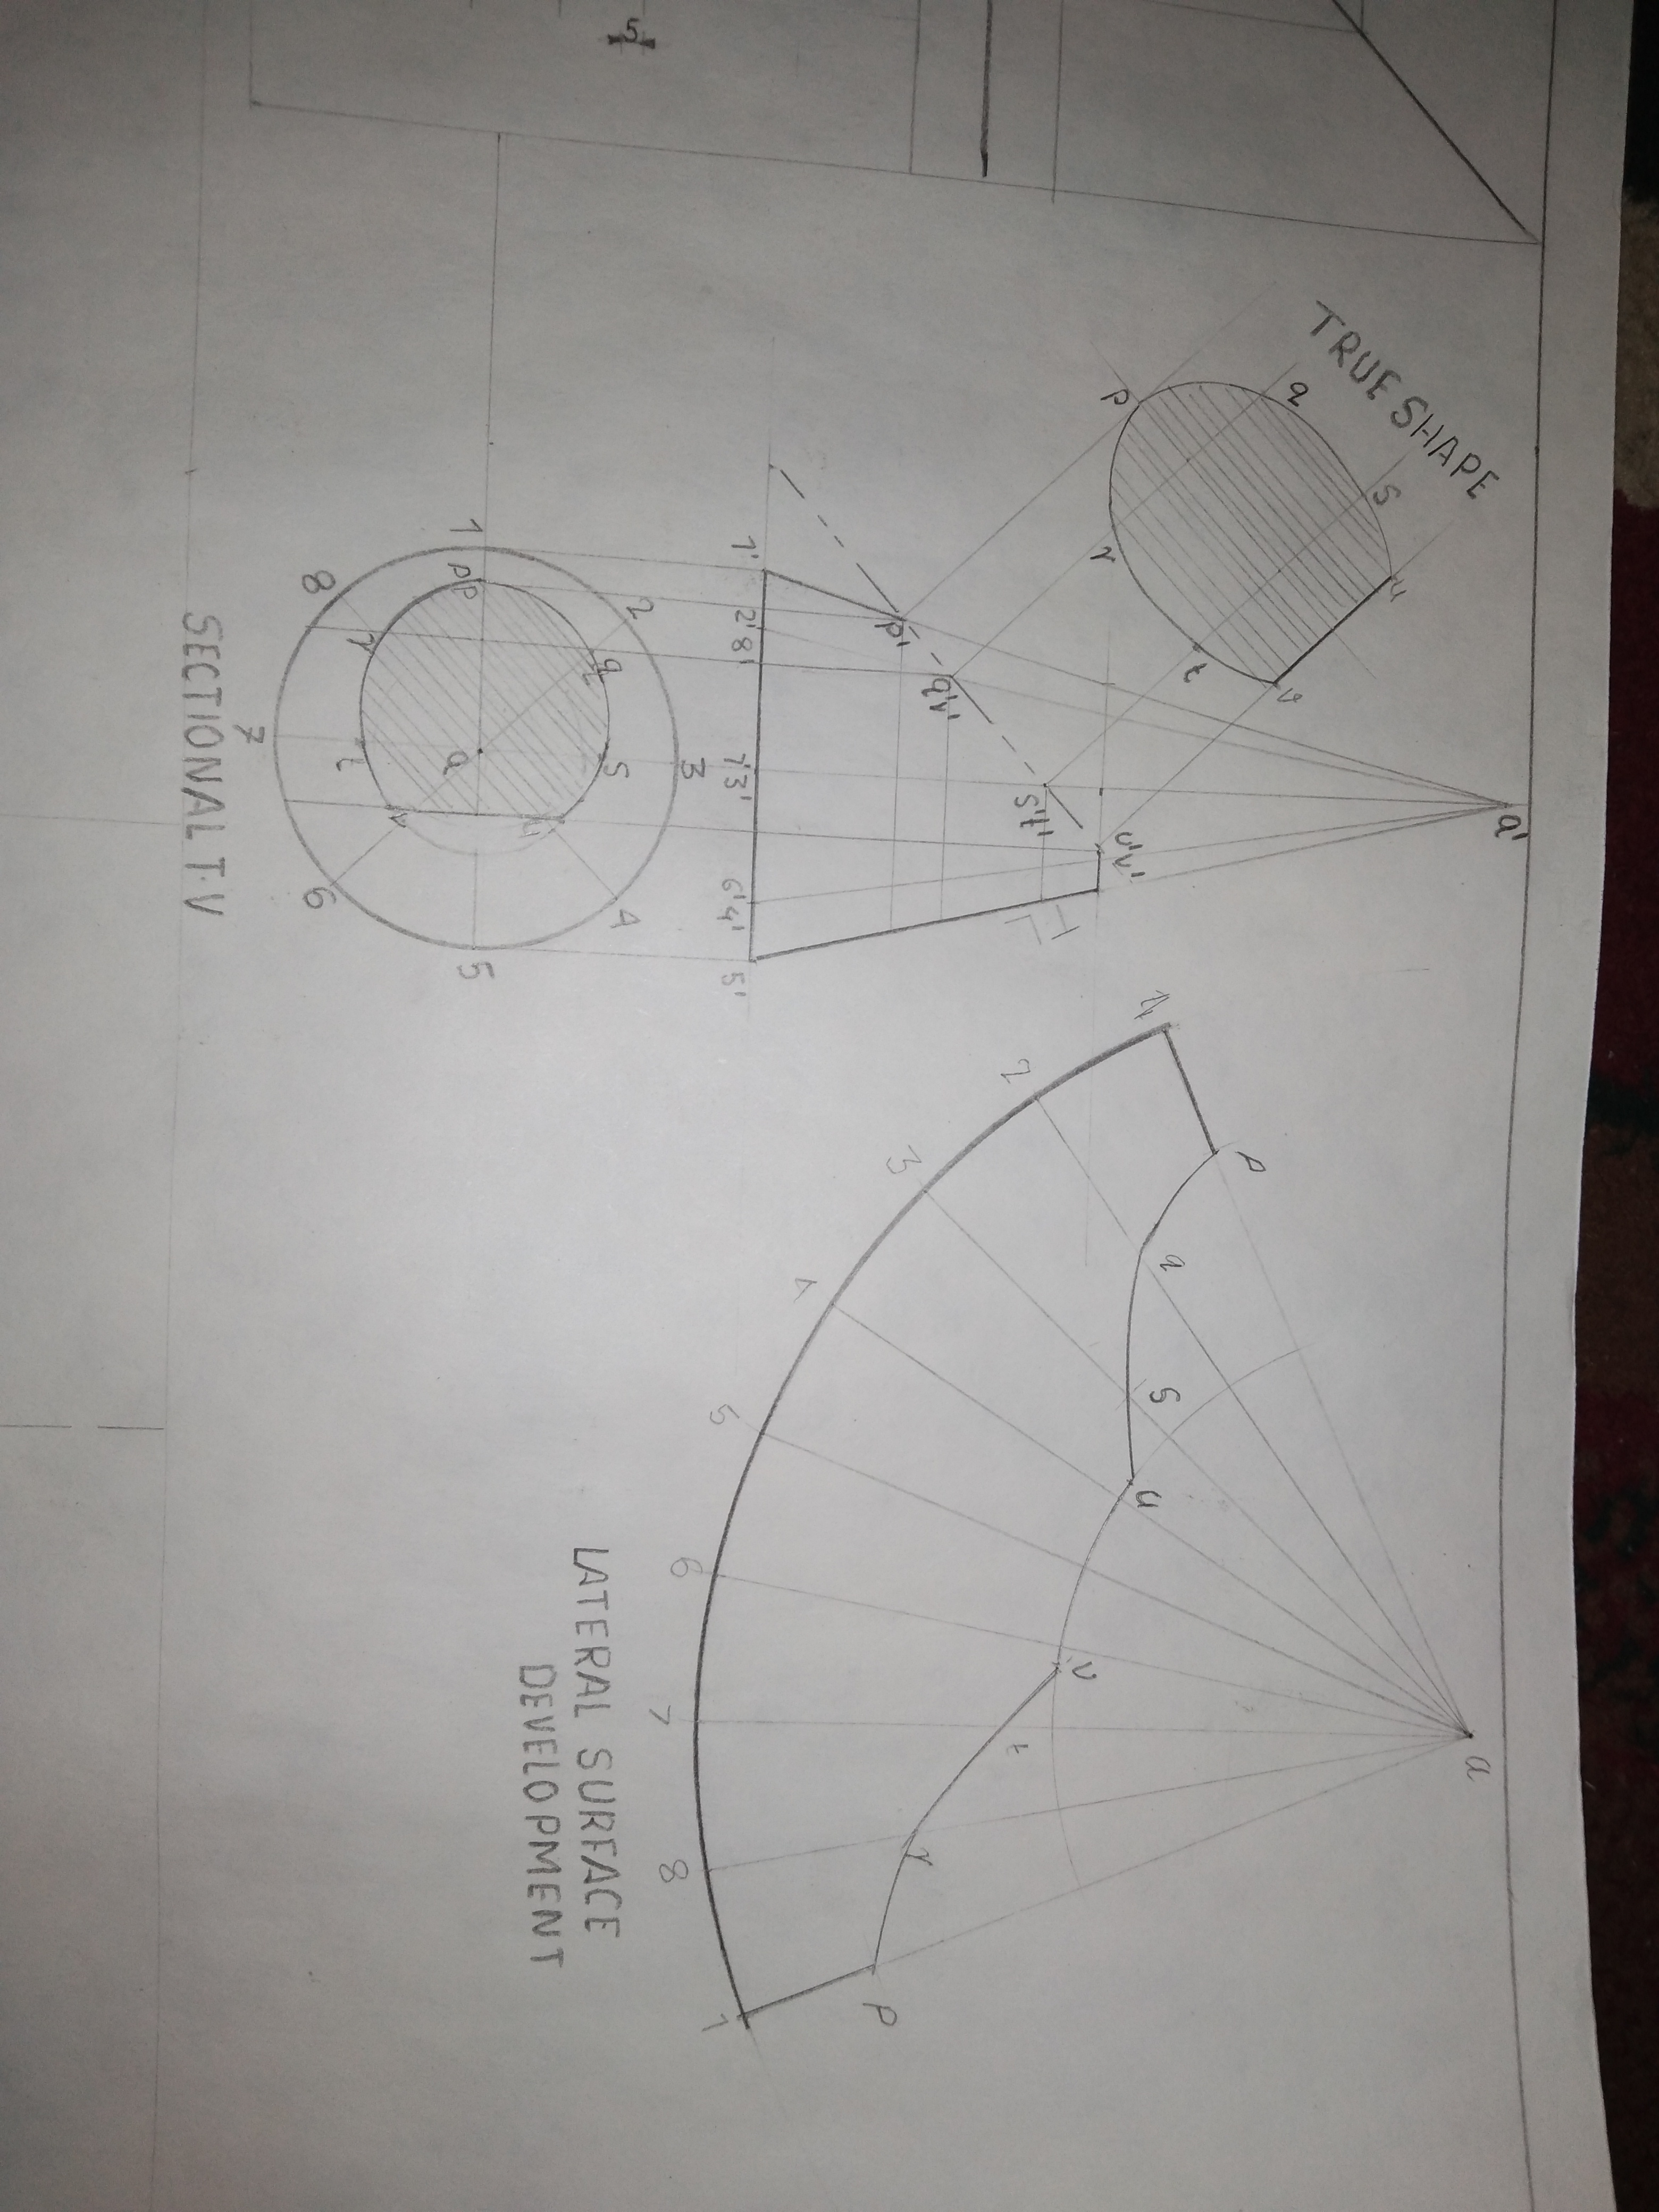 TRUE SHAPE
a'
a
S
u
q
v
t
p
r
u'v'
TL
s't'
q'r'
p'
1' 2' 8' 7' 3' 6' 4' 5'
3
2
4
q
S
u
1
p
p
a
5
v
r
t
8
6
7
SECTIONAL T.V
P
q
S
u
v
t
r
P
1
2
3
4
5
6
7
8
1
LATERAL SURFACE
DEVELOPMENT
5